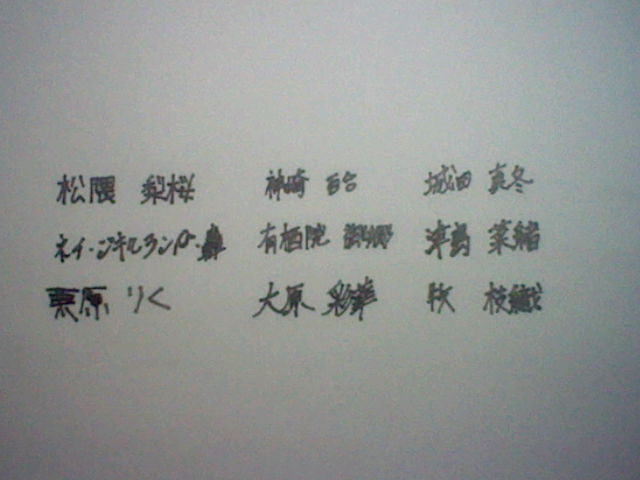 松隈 梨桜 神崎 百合 城田 真冬
ネイ・シキルランパ・轟 有栖院 津島 菜緒
栗原 りく 大原 彩華 牧 枝織